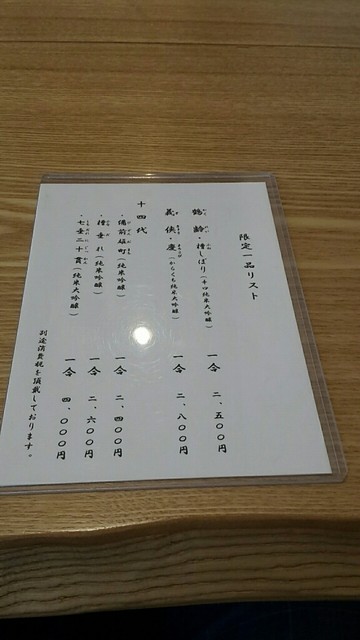 限定一品リスト
鶴齢・槽しぼり(辛口純米大吟醸) 一合 二、五〇〇円
義侠・慶(からくち純米大吟醸) 一合 二、八〇〇円
十四代
・備前雄町(純米吟醸) 一合 二、四〇〇円
・槽垂れ(純米吟醸) 一合 二、六〇〇円
・七垂二十貫(純米大吟醸) 一合 四、〇〇〇円
別途消費税を頂戴しております。